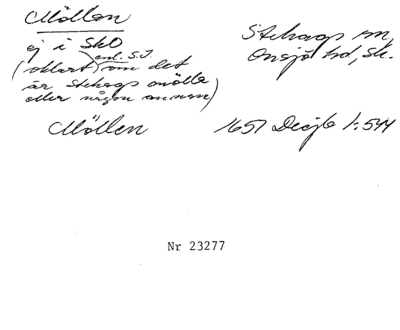 Möllen
Stehags sn,
ej i SkO
Onsjö hd, Sk.
enl. S.J.
(oklart om det
är Stehags mölla
eller någon annan)
Möllen 1657 Decjb 1:544
Nr 23277